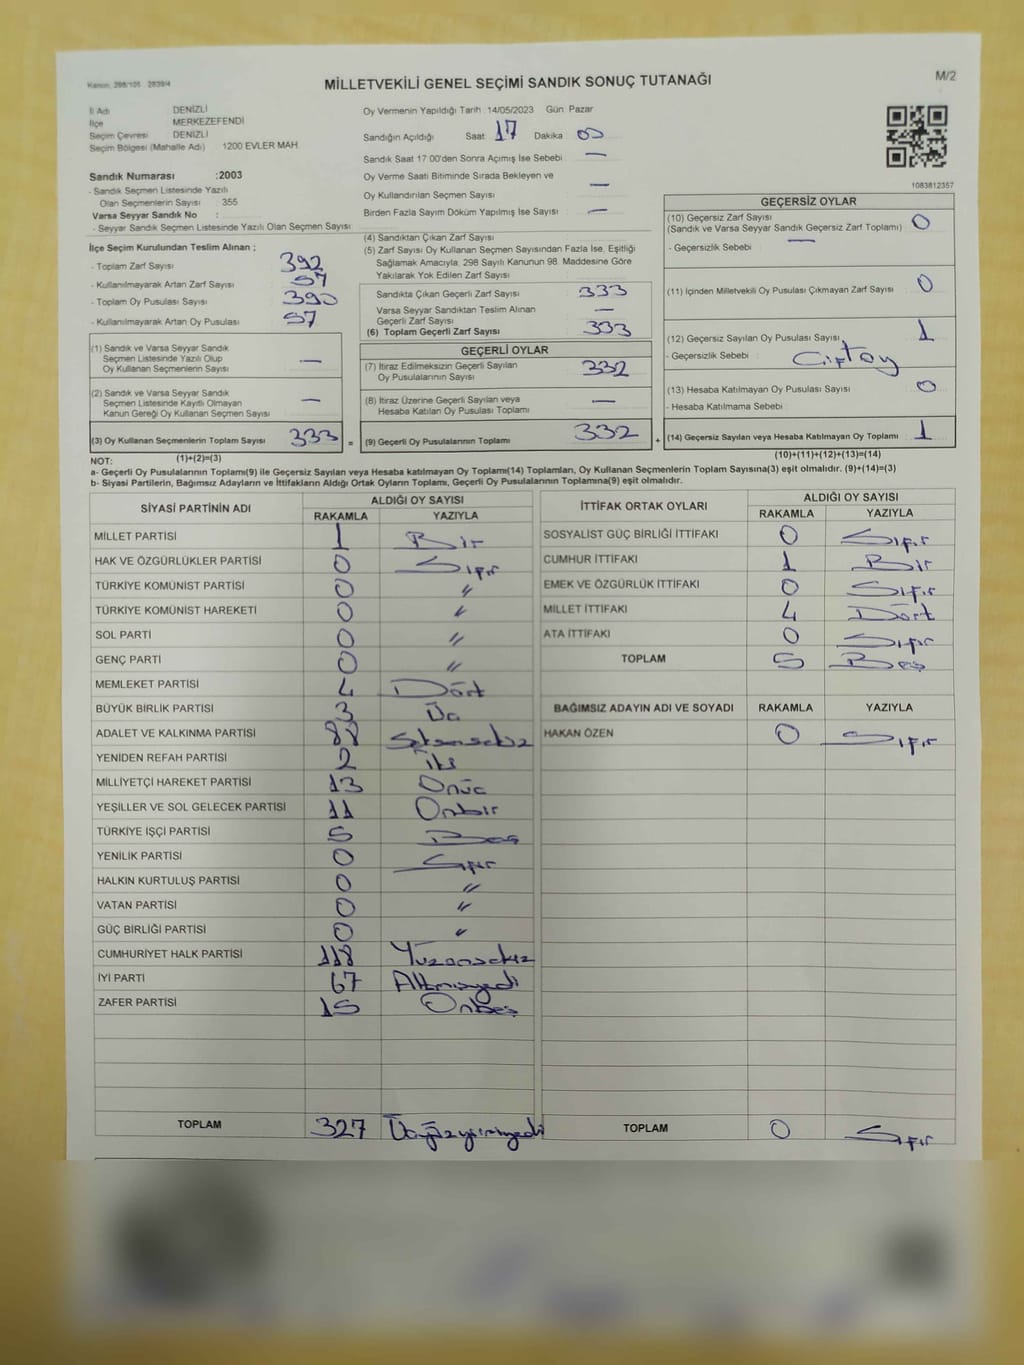 Kanun: 298/105 2839/4
MİLLETVEKİLİ GENEL SEÇİMİ SANDIK SONUÇ TUTANAĞI
M/2
İl Adı DENİZLİ
İlçe MERKEZEFENDİ
Seçim Çevresi DENİZLİ
Seçim Bölgesi (Mahalle Adı) 1200 EVLER MAH.
Sandık Numarası :2003
- Sandık Seçmen Listesinde Yazılı
Olan Seçmenlerin Sayısı : 355
Varsa Seyyar Sandık No :
- Seyyar Sandık Seçmen Listesinde Yazılı Olan Seçmen Sayısı :
İlçe Seçim Kurulundan Teslim Alınan ;
- Toplam Zarf Sayısı 392
- Kullanılmayarak Artan Zarf Sayısı 57
- Toplam Oy Pusulası Sayısı 390
- Kullanılmayarak Artan Oy Pusulası 57
(1) Sandık ve Varsa Seyyar Sandık
Seçmen Listesinde Yazılı Olup
Oy Kullanan Seçmenlerin Sayısı —
(2) Sandık ve Varsa Seyyar Sandık
Seçmen Listesinde Kayıtlı Olmayan
Kanun Gereği Oy Kullanan Seçmen Sayısı —
(3) Oy Kullanan Seçmenlerin Toplam Sayısı 333 =
(1)+(2)=(3)
Oy Vermenin Yapıldığı Tarih : 14/05/2023 Gün : Pazar
Sandığın Açıldığı Saat : 17 Dakika : 00
Sandık Saat 17:00'den Sonra Açımış İse Sebebi : —
Oy Verme Saati Bitiminde Sırada Bekleyen ve
Oy Kullandırılan Seçmen Sayısı : —
Birden Fazla Sayım Döküm Yapılmış İse Sayısı : —
(4) Sandıktan Çıkan Zarf Sayısı :
(5) Zarf Sayısı Oy Kullanan Seçmen Sayısından Fazla İse, Eşitliği
Sağlamak Amacıyla, 298 Sayılı Kanunun 98. Maddesine Göre
Yakılarak Yok Edilen Zarf Sayısı :
Sandıkta Çıkan Geçerli Zarf Sayısı : 333
Varsa Seyyar Sandıktan Teslim Alınan
Geçerli Zarf Sayısı : —
(6) Toplam Geçerli Zarf Sayısı : 333
GEÇERLİ OYLAR
(7) İtiraz Edilmeksizin Geçerli Sayılan
Oy Pusulalarının Sayısı : 332
(8) İtiraz Üzerine Geçerli Sayılan veya
Hesaba Katılan Oy Pusulası Toplamı : —
(9) Geçerli Oy Pusulalarının Toplamı : 332 +
1083812357
GEÇERSİZ OYLAR
(10) Geçersiz Zarf Sayısı
(Sandık ve Varsa Seyyar Sandık Geçersiz Zarf Toplamı) : 0
- Geçersizlik Sebebi : —
(11) İçinden Milletvekili Oy Pusulası Çıkmayan Zarf Sayısı : 0
(12) Geçersiz Sayılan Oy Pusulası Sayısı : 1
- Geçersizlik Sebebi : Çift oy
(13) Hesaba Katılmayan Oy Pusulası Sayısı : 0
- Hesaba Katılmama Sebebi :
(14) Geçersiz Sayılan veya Hesaba Katılmayan Oy Toplamı : 1
(10)+(11)+(12)+(13)=(14)
NOT:
a- Geçerli Oy Pusulalarının Toplamı(9) ile Geçersiz Sayılan veya Hesaba katılmayan Oy Toplamı(14) Toplamları, Oy Kullanan Seçmenlerin Toplam Sayısına(3) eşit olmalıdır. (9)+(14)=(3)
b- Siyasi Partilerin, Bağımsız Adayların ve İttifakların Aldığı Ortak Oyların Toplamı, Geçerli Oy Pusulalarının Toplamına(9) eşit olmalıdır.
SİYASİ PARTİNİN ADI ALDIĞI OY SAYISI
RAKAMLA YAZIYLA
MİLLET PARTİSİ 1 Bir
HAK VE ÖZGÜRLÜKLER PARTİSİ 0 Sıfır
TÜRKİYE KOMÜNİST PARTİSİ 0 〃
TÜRKİYE KOMÜNİST HAREKETİ 0 〃
SOL PARTİ 0 〃
GENÇ PARTİ 0 〃
MEMLEKET PARTİSİ 4 Dört
BÜYÜK BİRLİK PARTİSİ 3 Üç
ADALET VE KALKINMA PARTİSİ 88 Seksensekiz
YENİDEN REFAH PARTİSİ 2 İki
MİLLİYETÇİ HAREKET PARTİSİ 13 Onüç
YEŞİLLER VE SOL GELECEK PARTİSİ 11 Onbir
TÜRKİYE İŞÇİ PARTİSİ 5 Beş
YENİLİK PARTİSİ 0 Sıfır
HALKIN KURTULUŞ PARTİSİ 0 〃
VATAN PARTİSİ 0 〃
GÜÇ BİRLİĞİ PARTİSİ 0 〃
CUMHURİYET HALK PARTİSİ 118 Yüzonsekiz
İYİ PARTİ 67 Altmışyedi
ZAFER PARTİSİ 15 Onbeş
TOPLAM 327 Üçyüzyirmiyedi
İTTİFAK ORTAK OYLARI ALDIĞI OY SAYISI
RAKAMLA YAZIYLA
SOSYALİST GÜÇ BİRLİĞİ İTTİFAKI 0 Sıfır
CUMHUR İTTİFAKI 1 Bir
EMEK VE ÖZGÜRLÜK İTTİFAKI 0 Sıfır
MİLLET İTTİFAKI 4 Dört
ATA İTTİFAKI 0 Sıfır
TOPLAM 5 Beş
BAĞIMSIZ ADAYIN ADI VE SOYADI RAKAMLA YAZIYLA
HAKAN ÖZEN 0 Sıfır
TOPLAM 0 Sıfır